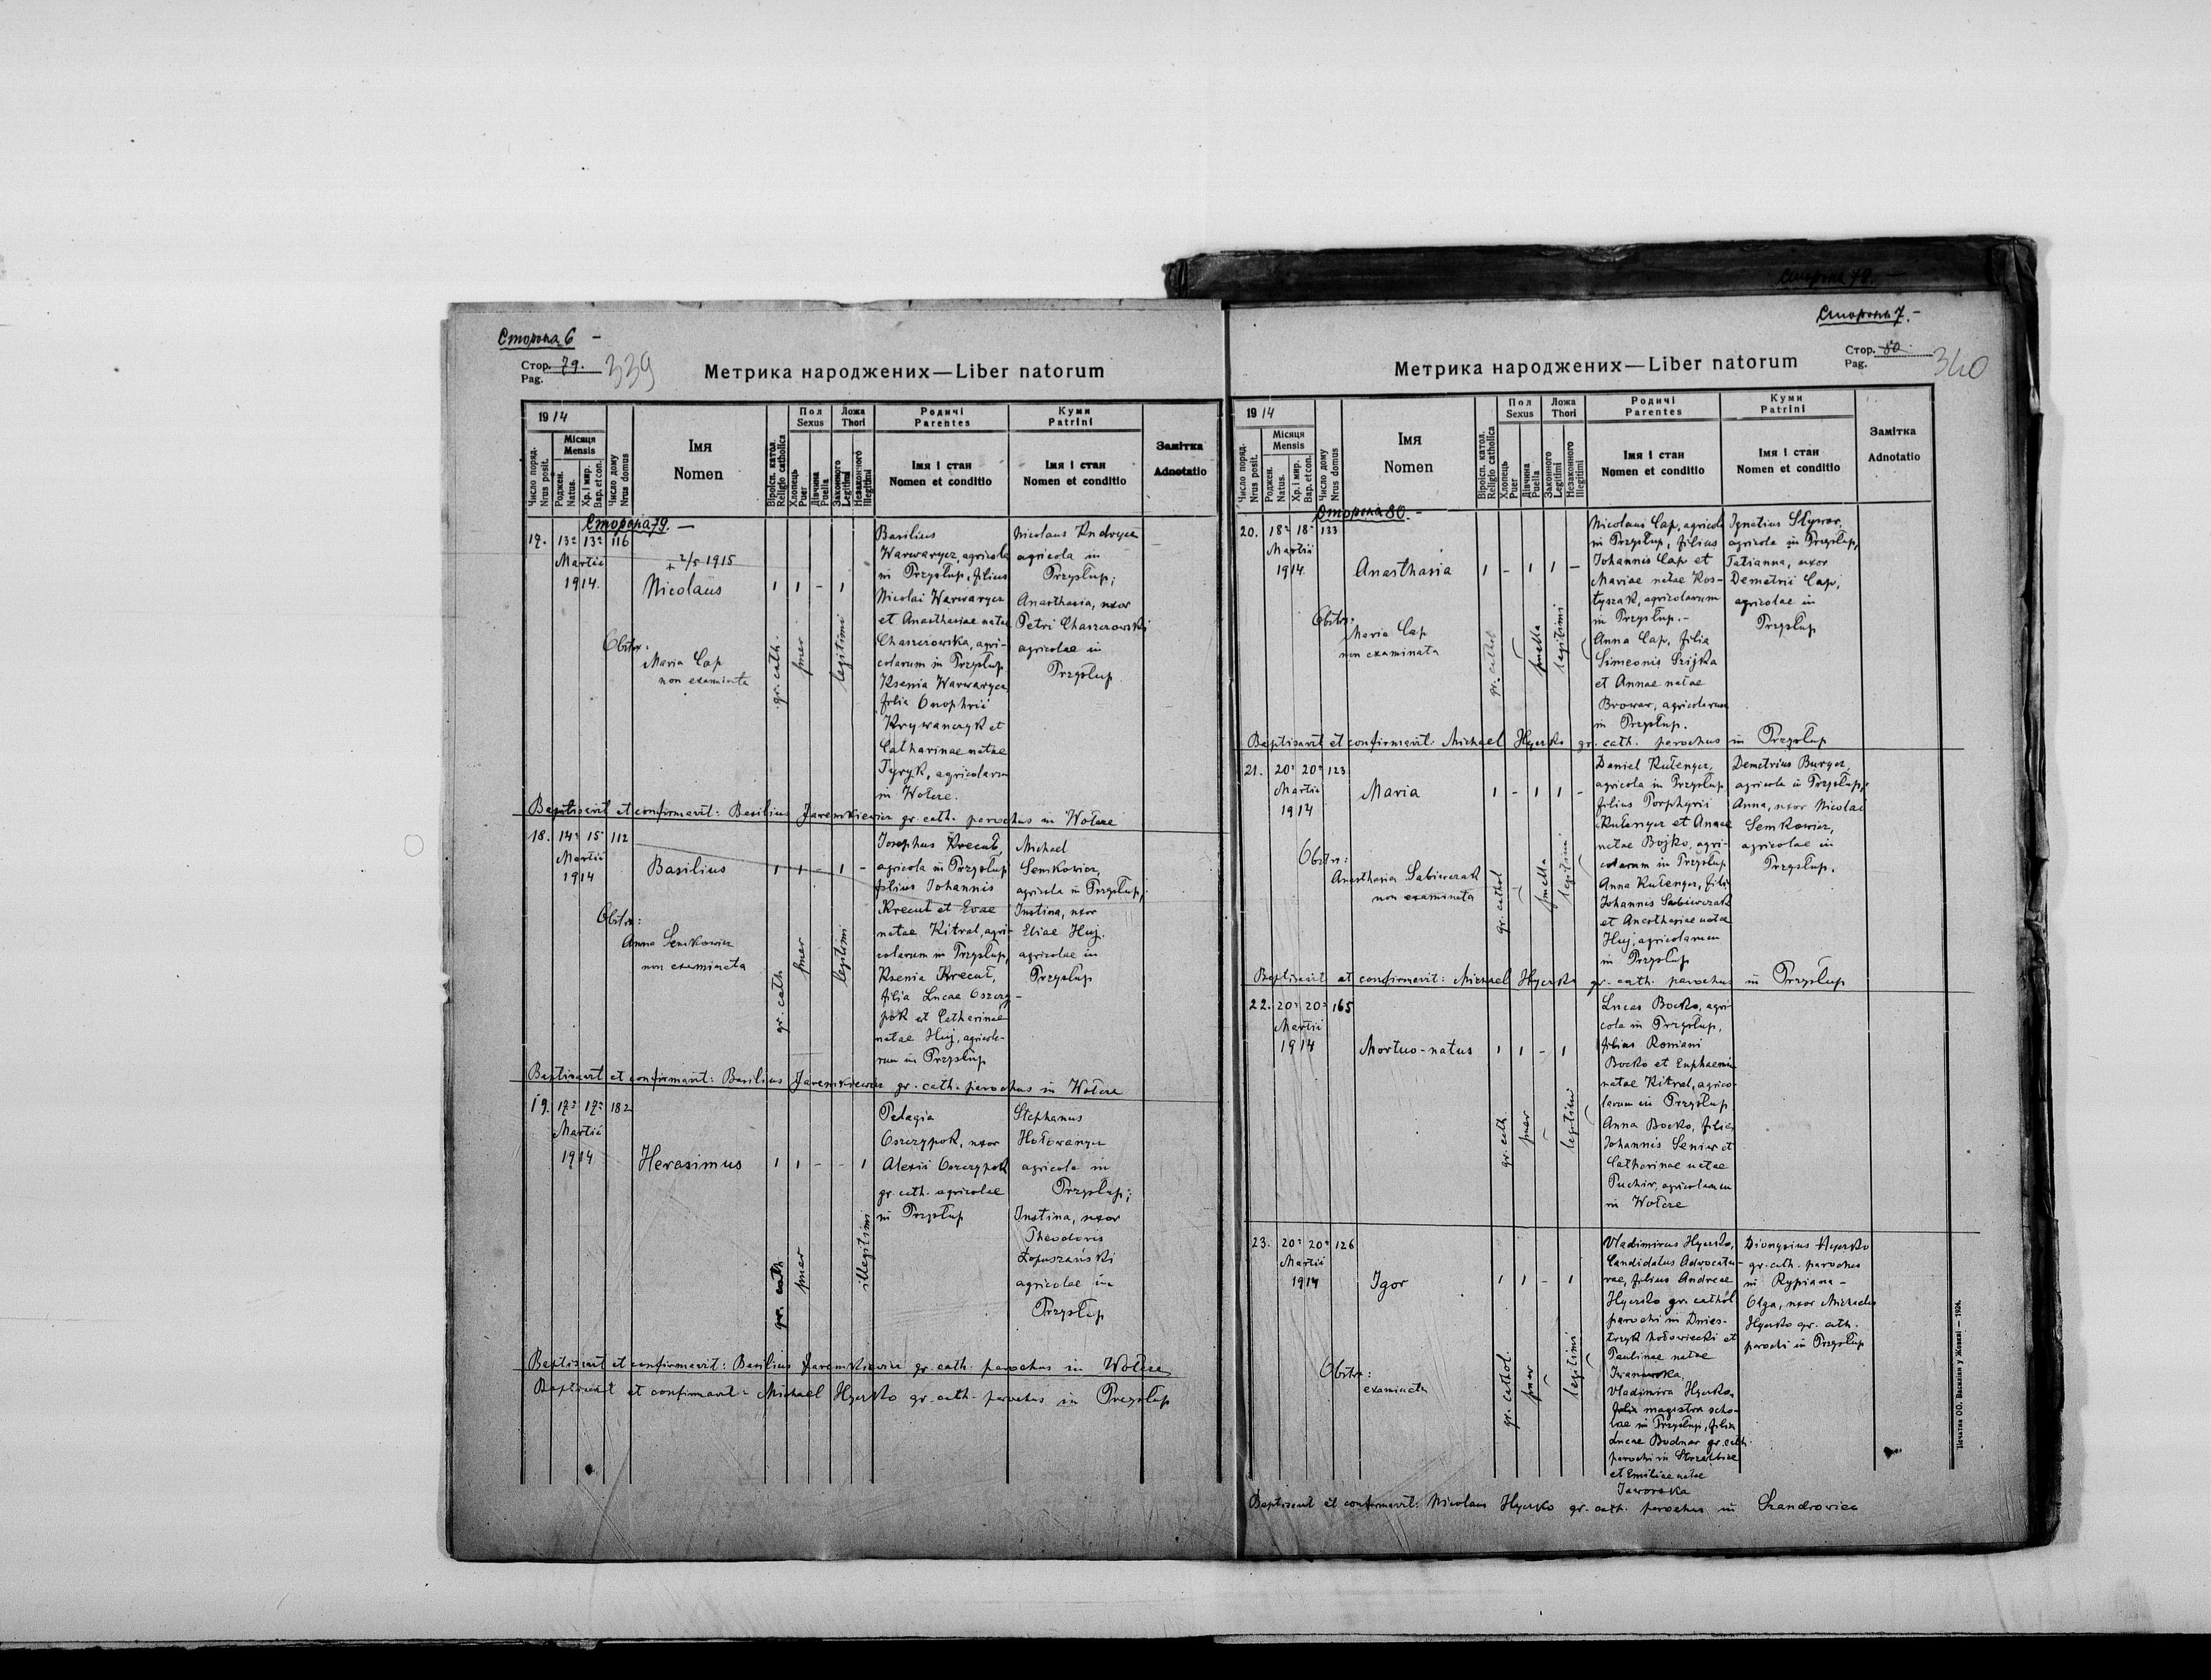 Сторона 6 -
Стор. 79. 339
Pag.
Метрика народжених—Liber natorum
1914
Число поряд. Nrus posit.
Місяця Mensis
Роджен. Natus.
Хр. і мир. Bap. et con.
Число дому Nrus domus
Імя
Nomen
Віроісп. катол. Religio catholica
Пол Sexus
Хлопець Puer
Дівчина Puella
Ложа Thori
Законного Legitimi
Незаконного Illegitimi
Родичі
Parentes
Імя і стан
Nomen et conditio
Куми
Patrini
Імя і стан
Nomen et conditio
Замітка
Adnotatio
Сторона 79. -
17. 13a 13a 116
Martii
1914.
+ 2/5 1915
Nicolaus
1 1 - 1
Obstr.:
Maria Cap
non examinata
gr. cath.
puer
legitimi
Basilius
Warwarycz, agricola
in Przysłup, filius
Nicolai Warwarycz
et Anasthasiae natae
Chaszczowska, agri-
colarum in Przysłup
Ksenia Warwarycz
filia Onophrii
Krywanczyk et
Catharinae natae
Tyryk, agricolarum
in Wołcze.
Nicolaus
agricola in
Przysłup;
Anasthasia, uxor
Petri Chaszczowski
agricolae in
Przysłup
Baptisavit et confirmavit: Basilius Jaremkiewicz gr. cath. parochus in Wołcze
18. 14a 15a 112
Martii
1914
Basilius
1 1 - 1 -
Obstr.:
Anna Semkowicz
non examinata
gr. cath
puer
legitimi
Josephus Krecuł,
agricola in Przysłup
filius Johannis
Krecuł et Evae
natae Kitral, agri-
colarum in Przysłup,
Ksenia Krecuł,
filia Lucae Oszczy-
pok et Catharinae
natae Huj, agricola-
rum in Przysłup
Michael
Semkowicz,
agricola in Przysłup;
Justina, uxor
Eliae Huj.
agricolae in
Przysłup
Baptisavit et confirmavit: Basilius Jaremkiewicz gr. cath. parochus in Wołcze
19. 17a 17a 182
Martii
1914
Herasimus
1 1 - - 1
gr. cath
puer
illegitimi
Pelagia
Oszczypok, uxor
Alexii Oszczypok
gr. cath. agricolae
in Przysłup
Stephanus
Hołowanycz
agricola in
Przysłup;
Justina, uxor
Theodoris
Łopuszański
agricolae in
Przysłup
Baptisavit et confirmavit: Basilius Jaremkiewicz gr. cath. parochus in Wołcze
Baptisavit et confirmavit: Michael Hyczko gr. cath. parochus in Przysłup
Сторона 79. -
Сторона 7. -
Стор. 80 340
Pag.
Метрика народжених—Liber natorum
1914
Число поряд. Nrus posit.
Місяця Mensis
Роджен. Natus.
Хр. і мир. Bap. et con.
Число дому Nrus domus
Імя
Nomen
Віроісп. катол. Religio catholica
Пол Sexus
Хлопець Puer
Дівчина Puella
Ложа Thori
Законного Legitimi
Незаконного Illegitimi
Родичі
Parentes
Імя і стан
Nomen et conditio
Куми
Patrini
Імя і стан
Nomen et conditio
Замітка
Adnotatio
Сторона 80. -
20. 18a 18a 133
Martii
1914.
Anasthasia
1 - 1 1 -
Obstr.:
Maria Cap
non examinata
gr. cathol
puella
legitimi
Nicolaus Cap, agricola
in Przysłup, filius
Johannis Cap et
Mariae natae Kos-
tyszak, agricolarum
in Przysłup.-
Anna Cap, filia
Simeonis Szijka
et Annae natae
Browar, agricolarum
in Przysłup.
Ignatius Sływar,
agricola in Przysłup,
Tatianna, uxor
Demetrii Cap,
agricolae in
Przysłup
Baptisavit et confirmavit: Michael Hyczko gr. cath. parochus in Przysłup
21. 20a 20a 123
Martii
1914
Maria
1 - 1 1 -
Obstr.:
Anasthasia Sabiwczak
non examinata
gr. cathol
puella
legitimi
Daniel Kułenycz,
agricola in Przysłup
filius Porphyrii
Kułenycz et Annae
natae Bojko, agri-
colarum in Przysłup
Anna Kułenycz, filia
Johannis Sabiwczak
et Anasthasiae natae
Huj, agricolarum
in Przysłup
Demetrius Burycz,
agricola in Przysłup;
Anna, uxor Nicolai
Semkowicz,
agricolae in
Przysłup.
Baptisavit et confirmavit: Michael Hyczko gr. cath. parochus in Przysłup
22. 20a 20a 165
Martii
1914
Mortuo-natus
1 1 - 1
gr. cath
puer
legitimi
Lucas Bocko, agri-
cola in Przysłup,
filius Romani
Bocko et Euphaemia
natae Kitral, agrico-
larum in Przysłup
Anna Bocko, filia
Johannis Seniw et
Catharinae natae
Puchir, agricolarum
in Wołcze
23. 20a 20a 126
Martii
1914
Igor
1 1 - 1
Obstr.:
examinata
gr. cathol.
puer
legitimi
Vladimirus Hyczko,
Candidatus Advocatu-
rae, filius Andreae
Hyczko gr. cathol
parochi in Dnies-
trzyk hołowiecki et
Paulinae natae
Iwanowska,
Vladimira Hyczko,
filia magistra scho-
lae in Przysłup, filia
Lucae Bodnar gr. cath.
parochi in Strzałbice
et Emiliae natae
Jaworska
Dionysius Hyczko
gr. cath. parochus
in Rypiana -
Olga, uxor Michaelis
Hyczko gr. cath.
parochi in Przysłup
Baptisavit et confirmavit: Nicolaus Hyczko gr. cath. parochus in Szandrowiec
Печатня ОО. Василіян у Жовкві — 1924.